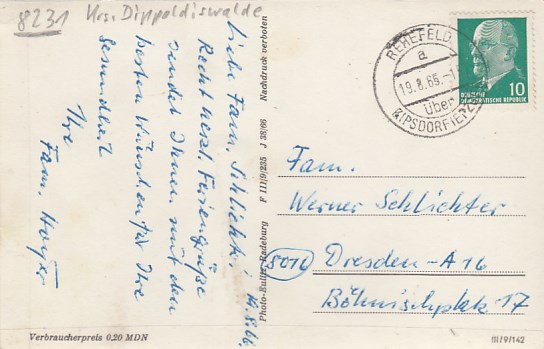 8231 Krs. Dippoldiswalde
Liebe Fam. Schlicht! 18.8.66.
Recht herzl. Feriengrüße
sendet Ihnen mit den
besten Wünschen für Ihre
Gesundheit
Ihre
Fam.
Verbraucherpreis 0,20 MDN
Photo-Kutter Radeburg F III/9/235 J 38/66 Nachdruck verboten
REHEFELD
a
19.8.66.-1
über
KIPSDORF(ERZ
10
DEUTSCHE
DEMOKRATISCHE REPUBLIK
Fam.
Werner Schlichter
8016 Dresden-A16
Böhnischplatz 17
III/9/142